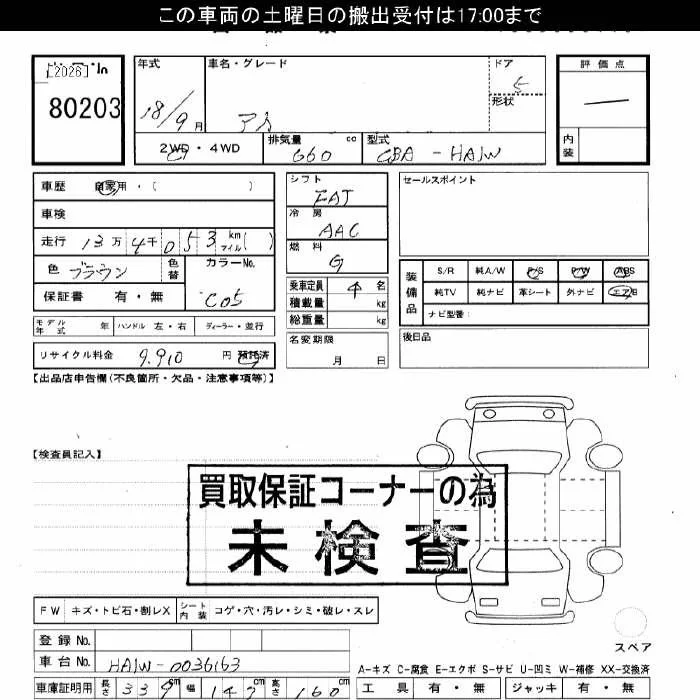 この車両の土曜日の搬出受付は17:00まで
[2026]
80203
年式
18/9月
車名・グレード
ドア
5
形状
評価点
—
内装
2WD・4WD
排気量 660 cc
型式 CBA - HA1W
車歴 自家用・( )
車検
走行 13万 4千 053 km マイル ( )
色 ブラウン 色替
カラーNo.
C05
保証書 有・無
モデル年式 年 ハンドル 左・右 ディーラー・並行
リサイクル料金 9.910 円 預託済
シフト
FAT
冷房
AAC
燃料
G
乗車定員 4 名
積載量 kg
総重量 kg
名変期限
月 日
セールスポイント
装備品
S/R 純A/W P/S P/W ABS
純TV 純ナビ 革シート 外ナビ エア/B
ナビ型番:
後日品
【出品店申告欄(不良箇所・欠品・注意事項等)】
【検査員記入】
買取保証コーナーの為
未検査
FW キズ・トビ石・割レX シート内装 コゲ・穴・汚レ・シミ・破レ・スレ
登録No.
車台No. HA1W-0036163
車庫証明用 長さ 339 cm 幅 147 cm 高さ 160 cm
スペア
A-キズ C-腐食 E-エクボ S-サビ U-凹ミ W-補修 XX-交換済
工具 有・無 ジャッキ 有・無